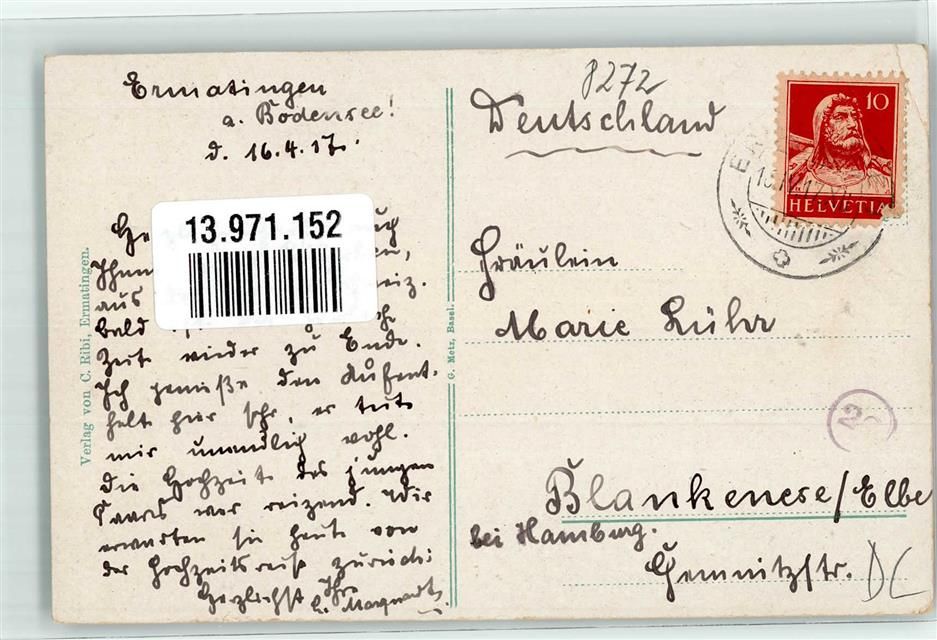 Ermatingen
a. Bodensee!
d. 16.4.17.
13.971.152
aus
bald
Zeit wieder zu Ende.
Ich genieße den Aufent-
halt hier sehr, es tut
mir unendlich wohl.
Die Hochzeit des jungen
Paars war reizend. Wir
erwarten sie heute von
der Hochzeitsreise zurück.
Herzlichst Ihr
Verlag von C. Ribi, Ermatingen.
G. Metz, Basel.
8272
Deutschland
10
HELVETIA
Fräulein
Marie Lühr
Blankenese/Elbe
bei Hamburg.
Chemnitzstr.
DL